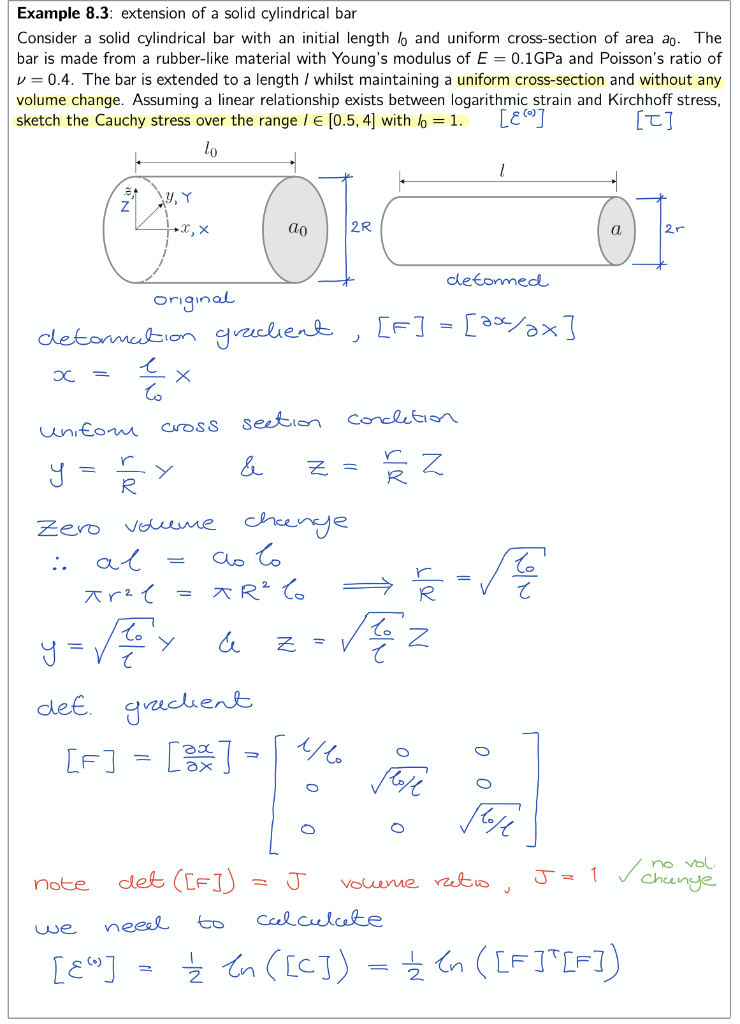 Example 8.3: extension of a solid cylindrical bar
Consider a solid cylindrical bar with an initial length l₀ and uniform cross-section of area a₀. The
bar is made from a rubber-like material with Young's modulus of E = 0.1GPa and Poisson's ratio of
ν = 0.4. The bar is extended to a length l whilst maintaining a uniform cross-section and without any
volume change. Assuming a linear relationship exists between logarithmic strain and Kirchhoff stress,
sketch the Cauchy stress over the range l ∈ [0.5, 4] with l₀ = 1. [ε⁽⁰⁾] [τ]
l₀
l
z, Z
y, Y
x, X
a₀
2R
a
2r
original
deformed
deformation gradient, [F] = [∂x/∂X]
x = l/l₀ X
uniform cross section condition
y = r/R Y & z = r/R Z
Zero volume change
∴ al = a₀l₀
πr²l = πR²l₀ ⟹ r/R = √(l₀/l)
y = √(l₀/l) Y & z = √(l₀/l) Z
def. gradient
[F] = [∂x/∂X] = [ l/l₀ 0 0
0 √(l₀/l) 0
0 0 √(l₀/l) ]
note det([F]) = J volume ratio, J = 1 ✓ no vol. change
we need to calculate
[ε⁽⁰⁾] = ½ ln([C]) = ½ ln([F]ᵀ[F])